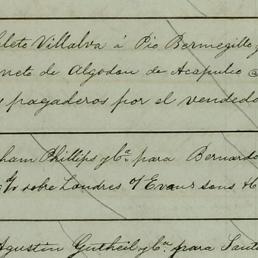 lete Villalva á Pio Bermegillo
nete de Algodon de Acapulco
y pagaderos por el vendedo
ham Phillips y ca. para Bernardo
sobre Londres Evans sons
Agustin Gutheil y ca. para Sant